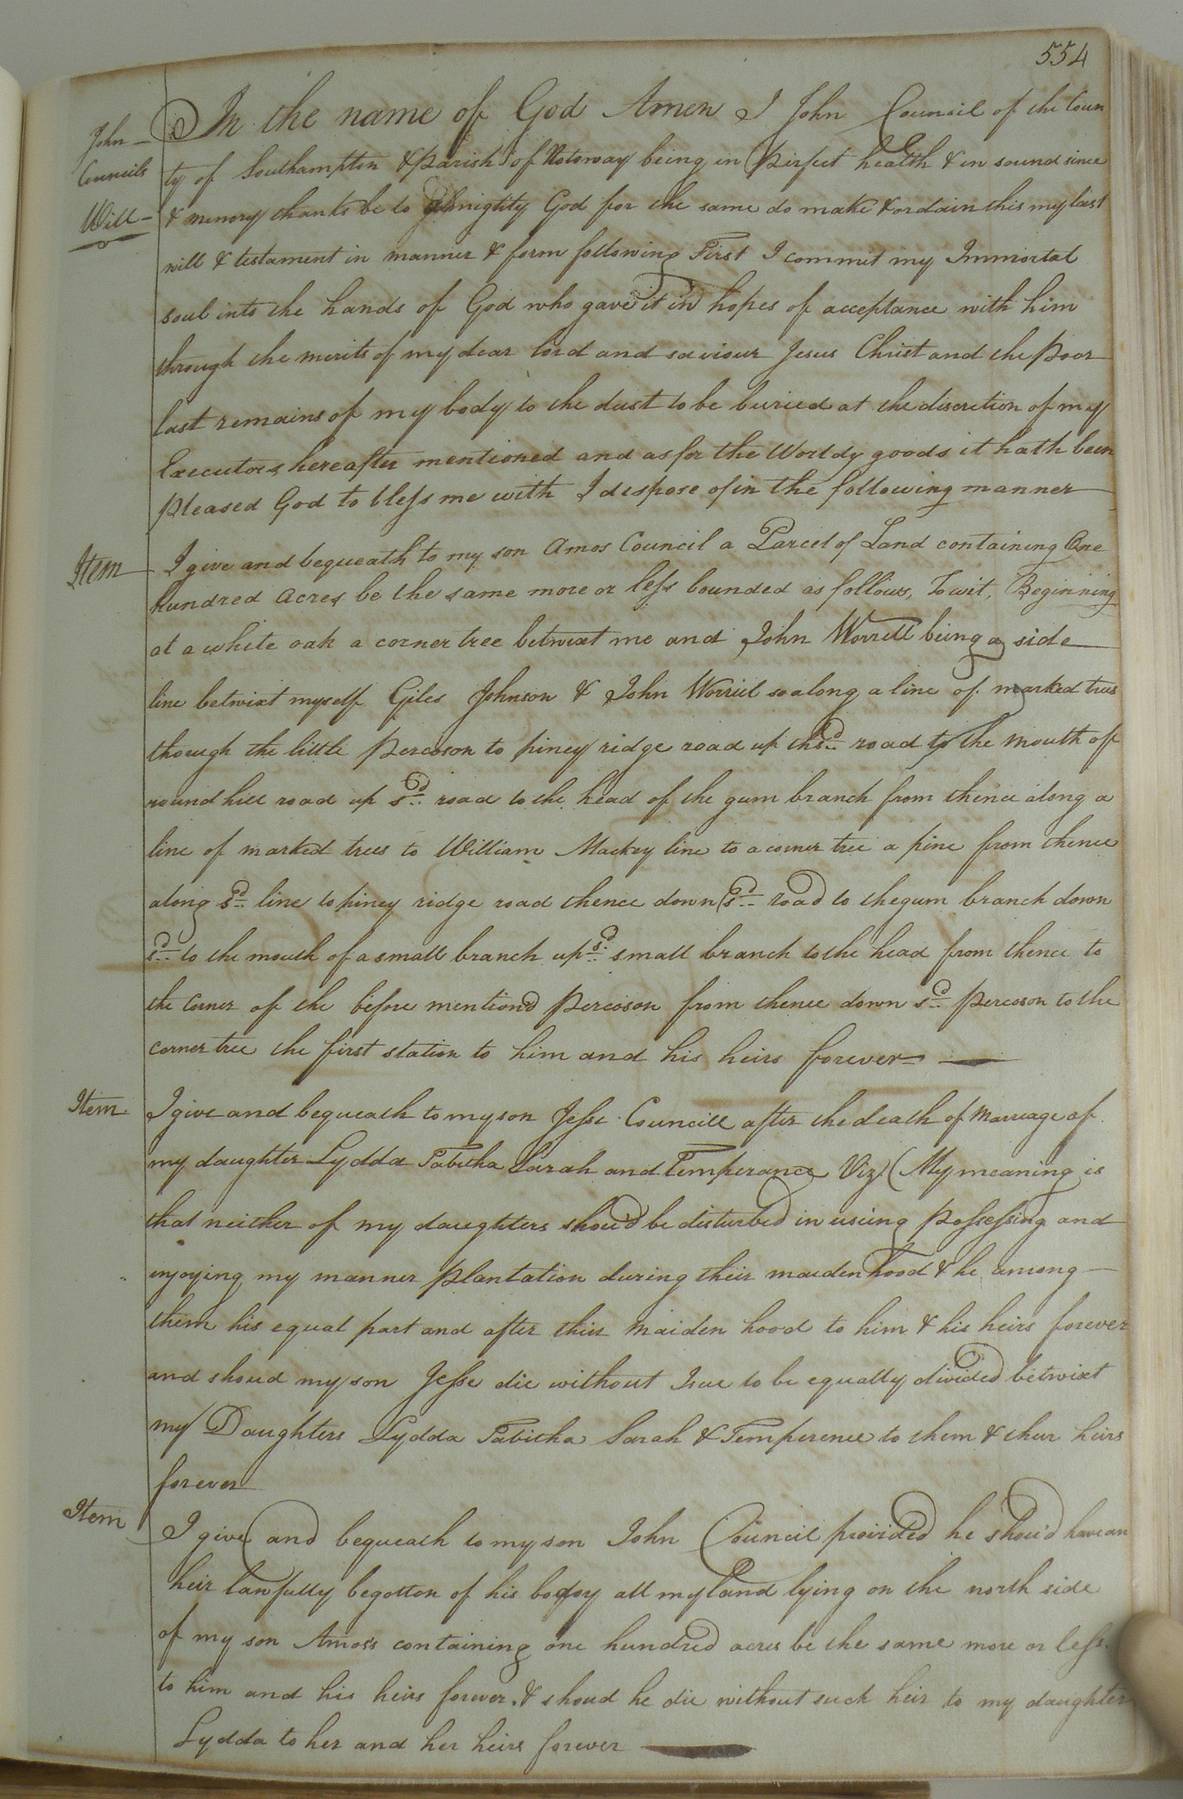 554
John
Councils
Will
In the name of God Amen I John Council of the Coun
ty of Southampton & parish of Notoway being in pirfect health & in sound since
& memory thanks be to almightity God for the same do make & ordain this my last
will & testament in manner & form following First I commit my Immortal
soul into the hands of God who gave it in hopes of acceptance with him
through the merits of my dear lord and saviour Jesus Christ and the poor
last remains of my body to the dust to be buried at the discretion of my
Executors hereafter mentioned and as for the Worldy goods it hath been
pleased God to bless me with I dispose of in the following manner
Item I give and bequeath to my son Amos Council a Parcel of Land containing One
hundred Acres be the same more or less bounded as follows, Towit, Beginning
at a white oak a corner tree betwixt me and John Worrell being a side
line betwixt myself Giles Johnson & John Worriel so along a line of marked trees
though the little percoson to piney ridge road up th sd. road to the mouth of
round hill road up sd. road to the head of the gum branch from thence along a
line of marked trees to William Mackey line to a corner tree a pine from thence
along sd. line to piney ridge road thence down sd. road to the gum branch down
sd. to the mouth of a small branch up sd. small branch to the head from thence to
the Corner of the before mentiond percoson from thence down sd. percoson to the
corner tree the first station to him and his heirs forever
Item I give and bequeath to my son Jesse Councill after the death of Marriage of
my daughter Lydda Tabitha Sarah and Temperance Viz (My meaning is
that neither of my daughters shoud be disturbed in using possessing and
injoying my manner plantation during their maiden hood & he among
them his equal part and after thier maiden hood to him & his heirs forever
and shoud my son Jesse die without Isue to be equally divided betwixt
my Daughters Lydda Tabitha Sarah & Temperence to them & their heirs
forever
Item I give and bequeath to my son John Council provided he shoud have an
heir lawfully begotton of his body all my land lying on the north side
of my son Amos's containing one hundred acres be the same more or less
to him and his heirs forever & shoud he die without such heir to my daughter
Lydda to her and her heirs forever